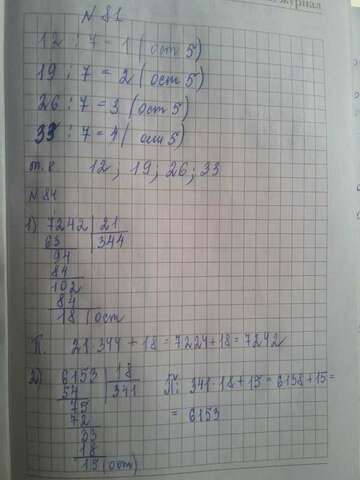 журнал
N 81
12 : 7 = 1 (ост 5)
19 : 7 = 2 (ост 5)
26 : 7 = 3 (ост 5)
33 : 7 = 4 (ост 5)
т. е 12; 19; 26; 33
N 84
1) 7242 | 21
63 | 344
94
84
102
84
18 (ост
П. 21·344 + 18 = 7224+18 = 7242
2) 6153 | 18
54 | 341
75
72
33
18
15 (ост)
П: 341·18+15 = 6138+15 =
= 6153